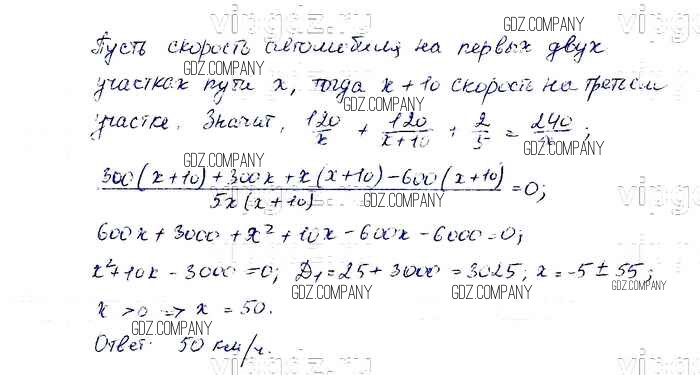 Пусть скорость автомобиля на первых двух
участках пути x, тогда x + 10 скорость на третьем
участке. Значит, 120/x + 120/(x+10) + 2/5 = 240/x;
(300(x+10) + 300x + x(x+10) - 600(x+10))/(5x(x+10)) = 0;
600x + 3000 + x² + 10x - 600x - 6000 = 0;
x² + 10x - 3000 = 0; D₁ = 25 + 3000 = 3025; x = -5 ± 55;
x > 0 => x = 50.
Ответ: 50 км/ч.
GDZ.COMPANY
GDZ.COMPANY
GDZ.COMPANY
GDZ.COMPANY
GDZ.COMPANY
GDZ.COMPANY
GDZ.COMPANY
GDZ.COMPANY
GDZ.COMPANY
GDZ.COMPANY
GDZ.COMPANY
GDZ.COMPANY